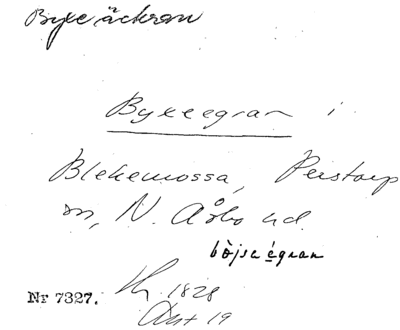 Byxeäckran
Byxeegran i
Blekemossa, Perstorp
sn, N. Åsbo hd.
böjsa égran
1828
Nr 7327.
Akt 19